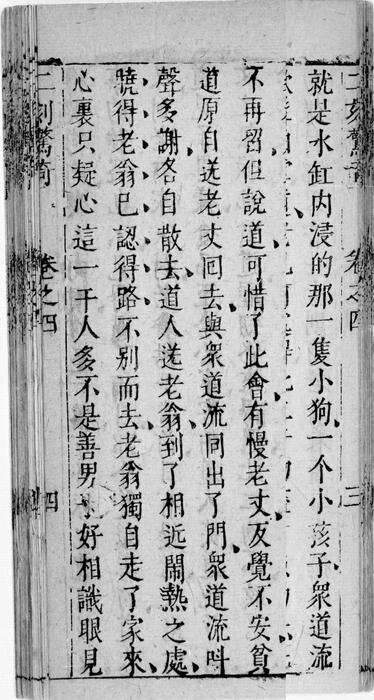 二刻驚 卷之四 三
就是水缸内浸的那一隻小狗一个小孩子衆道流
不再留但說道可惜了此會有慢老丈反覺不安貧
道原自送老丈回去與衆道流同出了門衆道流呌
聲多謝各自散去道人送老翁到了相近閙熱之處
曉得老翁已認得路不別而去老翁獨自走了家來
心裏只疑心這一干人多不是善男好相識眼見
二刻驚竒 卷之四 四